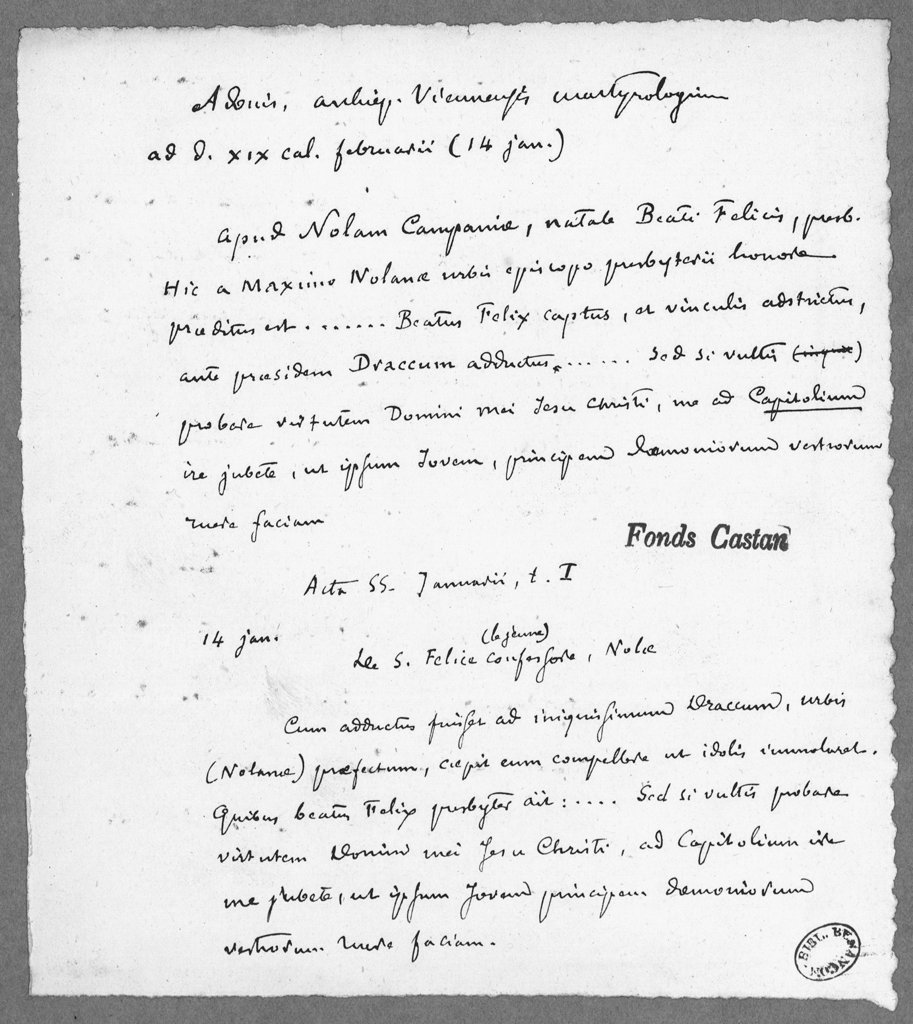 Adonis, archiep. Viennensis martyrologium
ad d. XIX cal. februarii (14 jan.)
apud Nolam Campaniæ, natale Beati Felicis, presb.
Hic a Maximo Nolanæ urbis episcopo presbyterii honore
præditus est ....... Beatus Felix captus, et vinculis adstrictus,
ante præsidem Draccum adductus ...... Sed si vultis (inquit)
probare virtutem Domini mei Jesu Christi, me ad Capitolium
ire jubete, ut ipsum Jovem, principem dæmoniorum vestrorum
ruere faciam
Fonds Castan
Acta SS. Januarii, t. I
14 jan.
(le jeune)
De S. Felice confessore, Nolæ
Cum adductus fuisset ad iniquissimum Draccum, urbis
(Nolanæ) præfectum, cæpit eum compellere ut idolis immolaret.
Quibus beatus Felix presbyter ait: .... Sed si vultis probare
virtutem Domini mei Jesu Christi, ad Capitolium ire
me jubete, ut ipsum Jovem principem dæmoniorum
vestrorum ruere faciam.
BIBL. BESANÇON